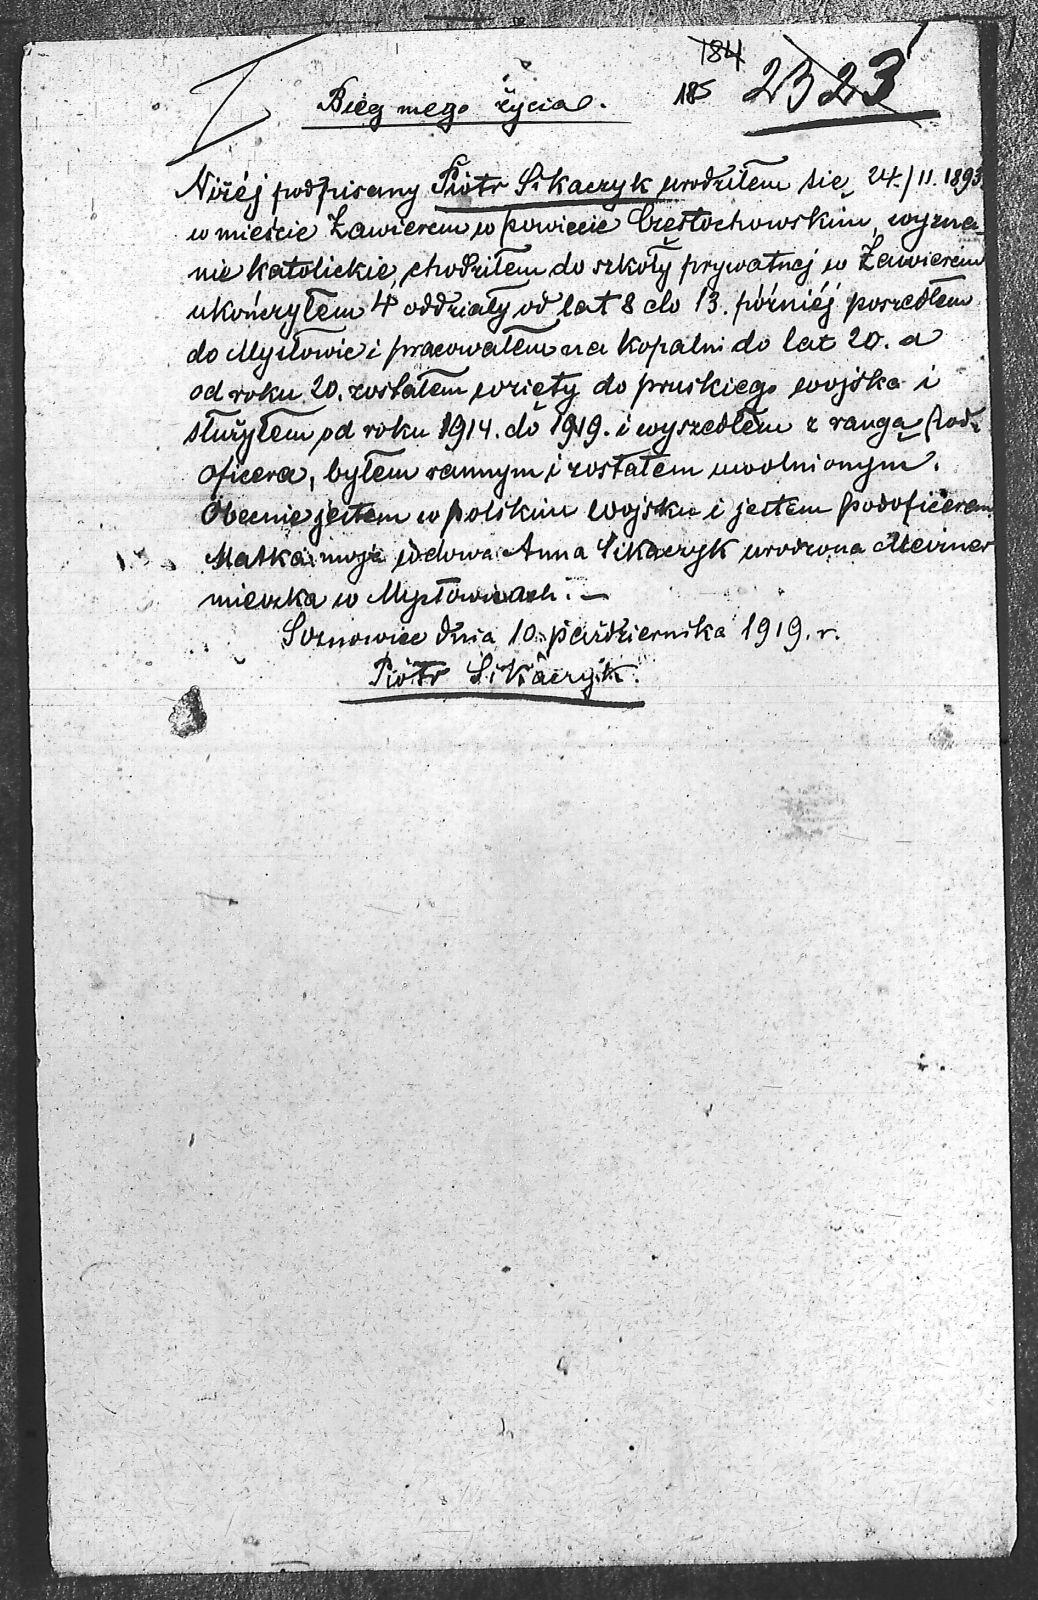 184
185 2323
Bieg mego życia.
Niżéj podpisany Piotr Sikaczyk urodziłem się 24./11. 1893
w mieście Zawierciu w powiecie Częstochowskim, wyzna-
nie katolickie, chodziłem do szkoły prywatnej w Zawierciu
ukończyłem 4 oddziały od lat 8 do 13. późniéj poszedłem
do Mysłowic i pracowałem na kopalni do lat 20. a
od roku 20. zostałem wzięty do pruskiego wojska i
służyłem od roku 1914. do 1919. i wyszedłem z rangą Pod-
oficera, byłem rannym i zostałem uwolnionym.
Obecnie jestem w polskim wojsku i jestem podoficerem
Matka moja wdowa Anna Sikaczyk urodzona
mieszka w Mysłowicach. —
Sosnowiec dnia 10. października 1919. r.
Piotr Sikaczyk.